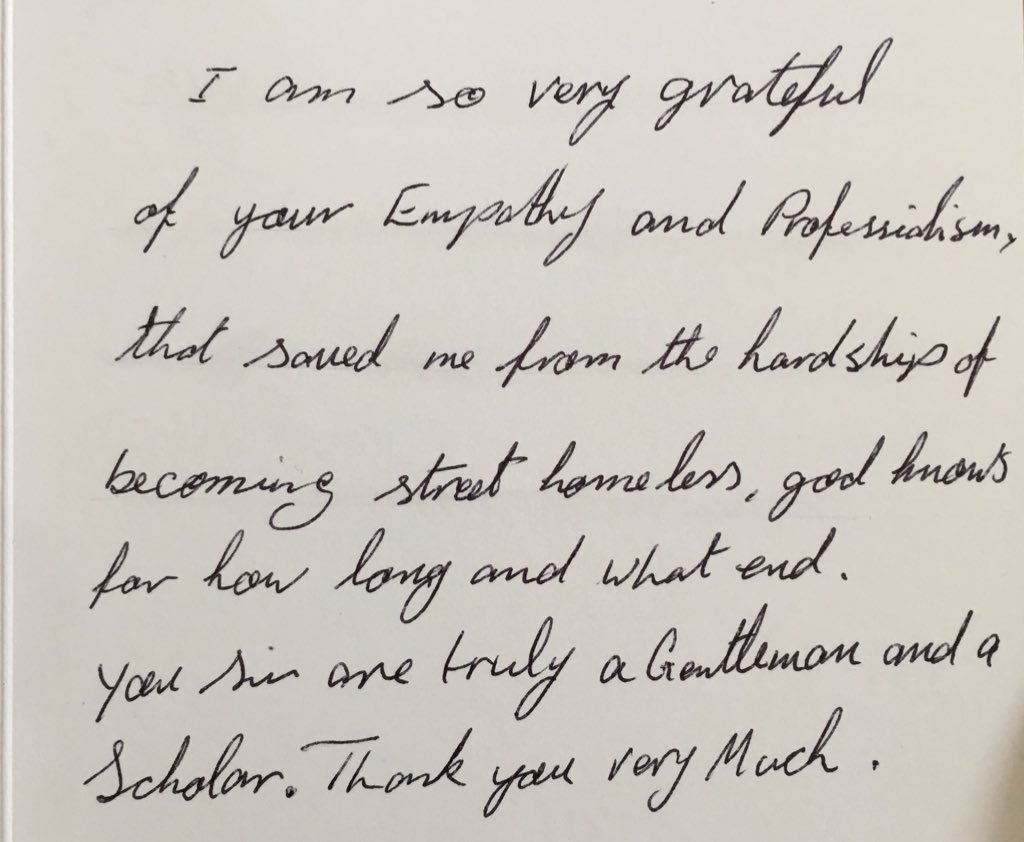 I am so very grateful
of your Empathy and Professialism,
that saved me from the hardship of
becoming street homeless, god knows
for how long and what end.
You sir are truly a Gentleman and a
Scholar. Thank you very Much.